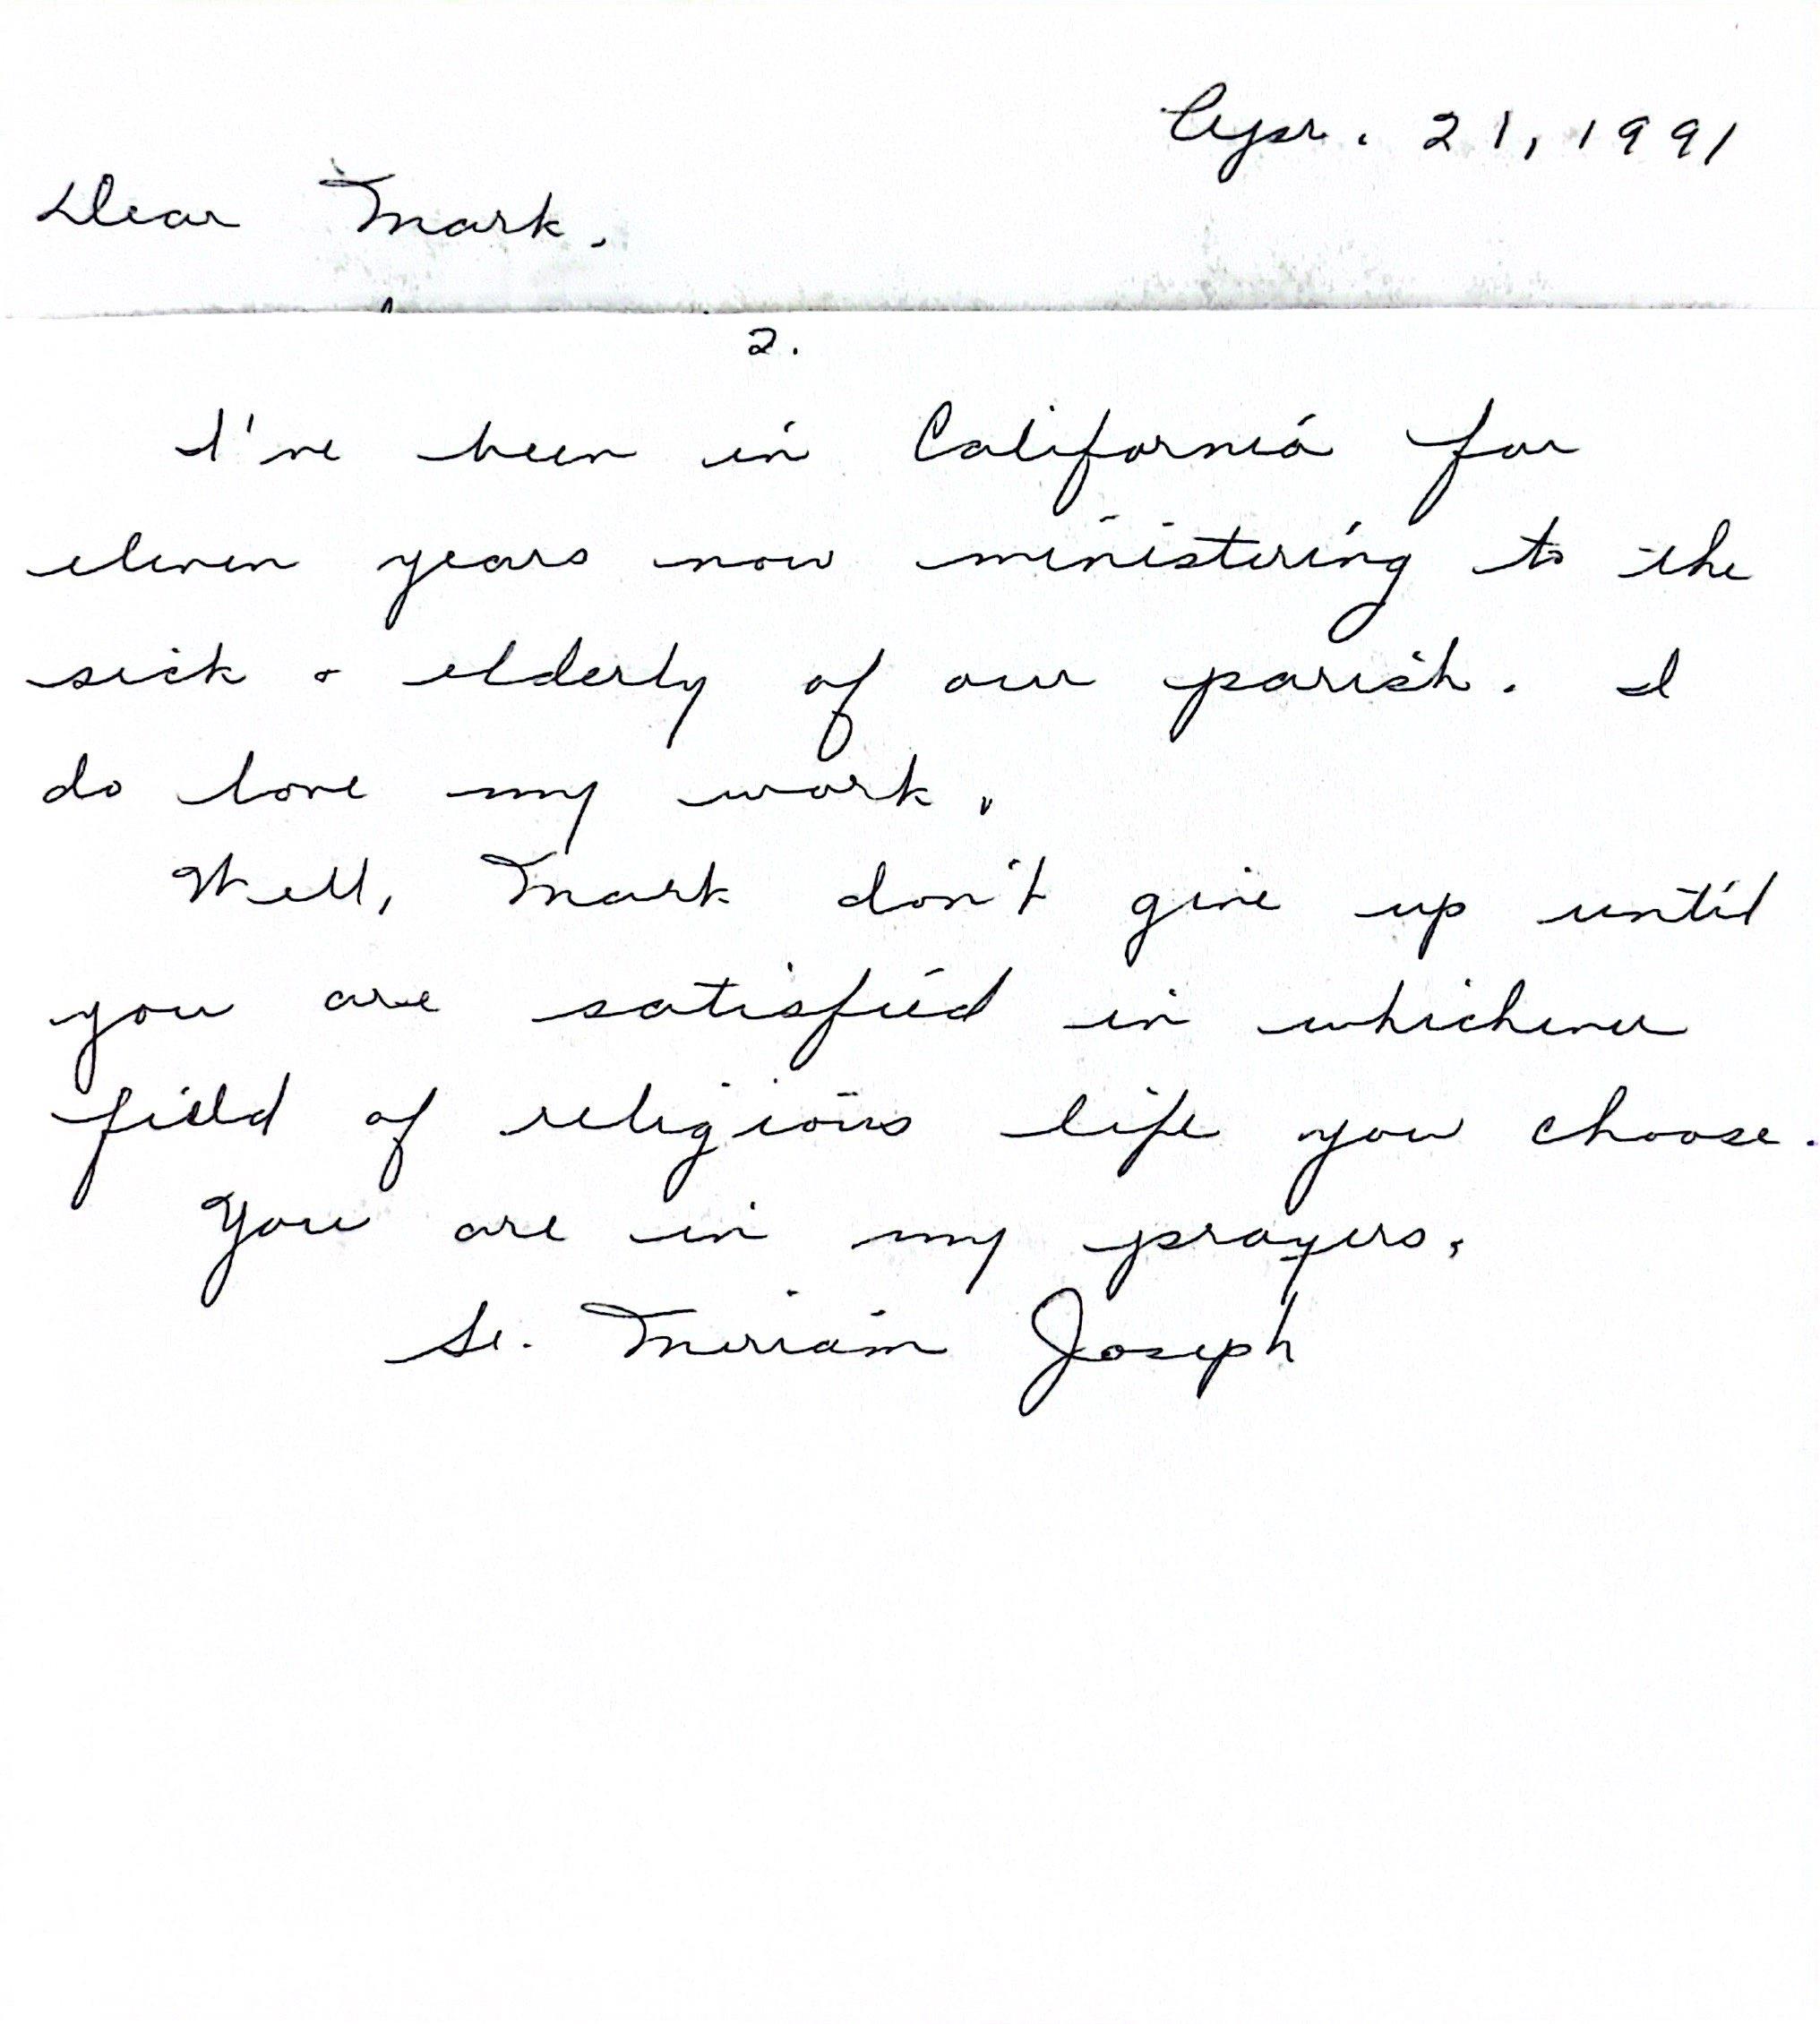 Apr. 21, 1991
Dear Mark,
2.
I've been in California for
eleven years now ministering to the
sick & elderly of our parish. I
do love my work.
Well, Mark don't give up until
you are satisfied in whichever
field of religious life you choose.
You are in my prayers,
Sr. Miriam Joseph